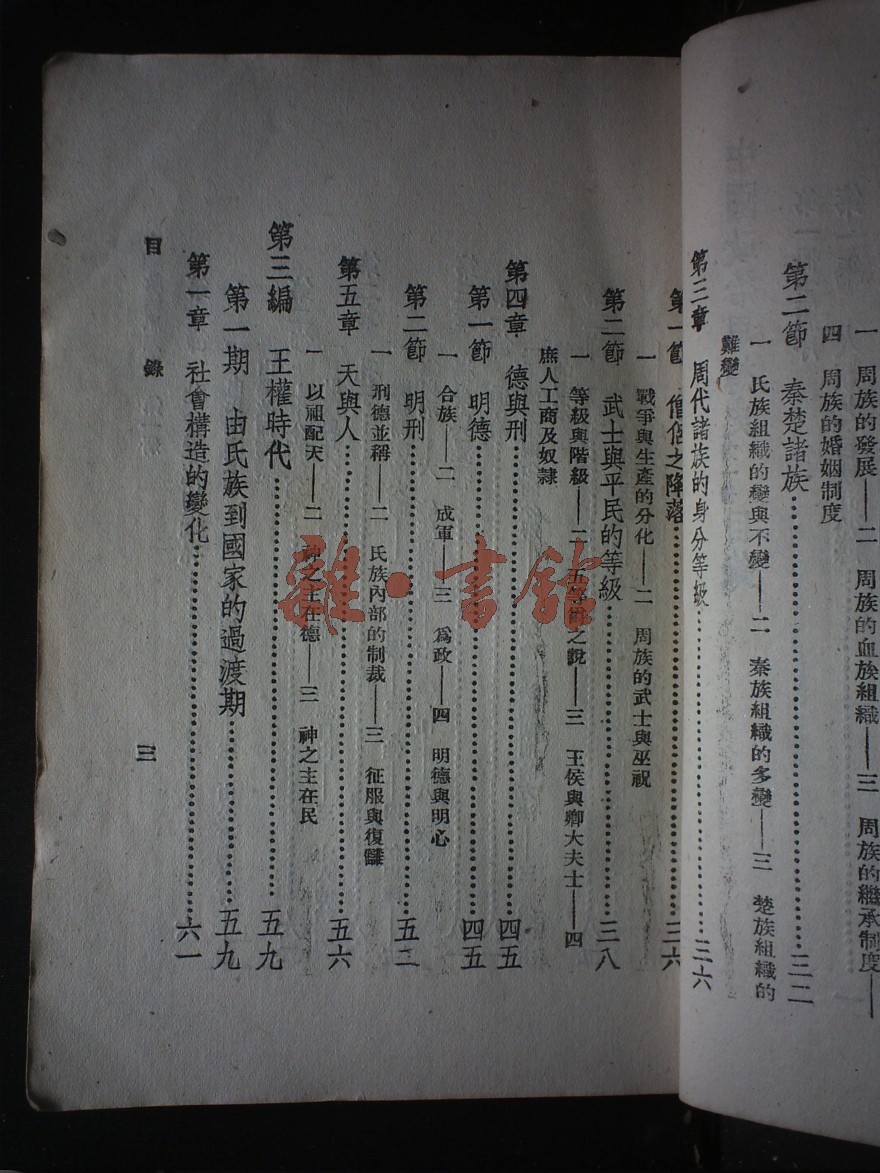 一　周族的發展——二　周族的血族組織——三　周族的繼承制度——
四　周族的婚姻制度
第二節　秦楚諸族……三二
一　氏族組織的變與不變——二　秦族組織的多變——三　楚族組織的
難變
第三章　周代諸族的身分等級……三六
第一節　僧侶之降落……三六
一　戰爭與生產的分化——二　周族的武士與巫祝
第二節　武士與平民的等級……三八
一　等級與階級——二　五等爵之說——三　王侯與卿大夫士——四
庶人工商及奴隸
第四章　德與刑……四五
第一節　明德……四五
一　合族——二　成軍——三　爲政——四　明德與明心
第二節　明刑……五二
一　刑德並稱——二　氏族內部的制裁——三　征服與復讎
第五章　天與人……五六
一　以祖配天——二　神之主在德——三　神之主在民
第三編　王權時代……五九
第一期　由氏族到國家的過渡期……五九
第一章　社會構造的變化……六一
目　錄　三
雜·書館